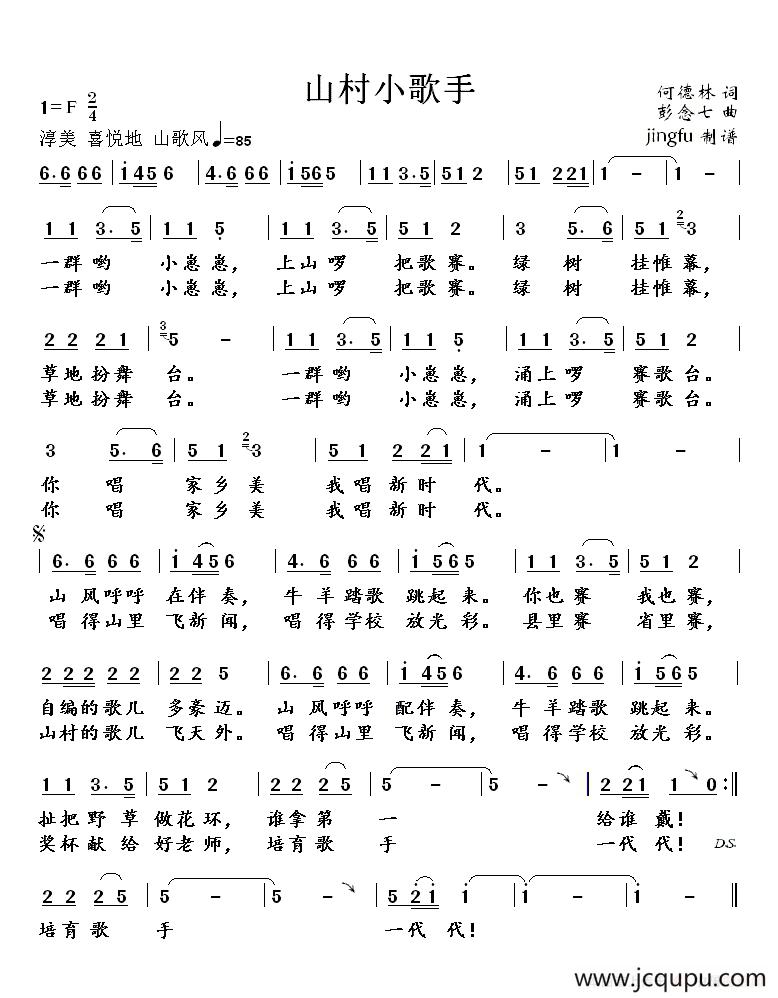 山村小歌手
1=F 2/4
何德林 词
彭念七 曲
jingfu 制谱
淳美 喜悦地 山歌风 ♩=85
6·6 6 6 | i 4 5 6 | 4·6 6 6 | i 5 6 5 | 1 1 3·5 | 5 1 2 | 5 1 2 2 1 | 1 - | 1 - |
1 1 3·5 | 1 1 5 | 1 1 3·5 | 5 1 2 | 3 5·6 | 5 1 2 3 |
一群哟 小崽崽, 上山啰 把歌赛。 绿 树 挂惟幕,
一群哟 小崽崽, 上山啰 把歌赛。 绿 树 挂惟幕,
2 2 2 1 | 3 5 - | 1 1 3·5 | 1 1 5 | 5 5 3·5 | 5 1 2 |
草地扮舞 台。 一群哟 小崽崽, 涌上啰 赛歌台。
草地扮舞 台。 一群哟 小崽崽, 涌上啰 赛歌台。
3 5·6 | 5 1 2 3 | 5 1 2 2 1 | 1 - | 1 - |
你 唱 家乡美 我唱新时 代。
你 唱 家乡美 我唱新时 代。
6·6 6 6 | i 4 5 6 | 4·6 6 6 | i 5 6 5 | 1 1 3·5 | 5 1 2 |
山风呼呼 在伴奏, 牛羊踏歌 跳起来。 你也赛 我也赛,
唱得山里 飞新闻, 唱得学校 放光彩。 县里赛 省里赛,
2 2 2 2 2 | 2 2 5 | 6·6 6 6 | i 4 5 6 | 4·6 6 6 | i 5 6 5 |
自编的歌儿 多豪迈。 山风呼呼 配伴奏, 牛羊踏歌 跳起来。
山村的歌儿 飞天外。 唱得山里 飞新闻, 唱得学校 放光彩。
1 1 3·5 | 5 1 2 | 2 2 2 5 | 5 - | 5 - | 2 2 1 | 1 0 :‖
扯把野草 做花环, 谁拿第 一 给谁 戴!
奖杯献给 好老师, 培育歌 手 一代 代! D.S.
2 2 2 5 | 5 - | 5 - | 5 2 i | i - | i - ‖
培育歌 手 一代 代!
www.jcqupu.com